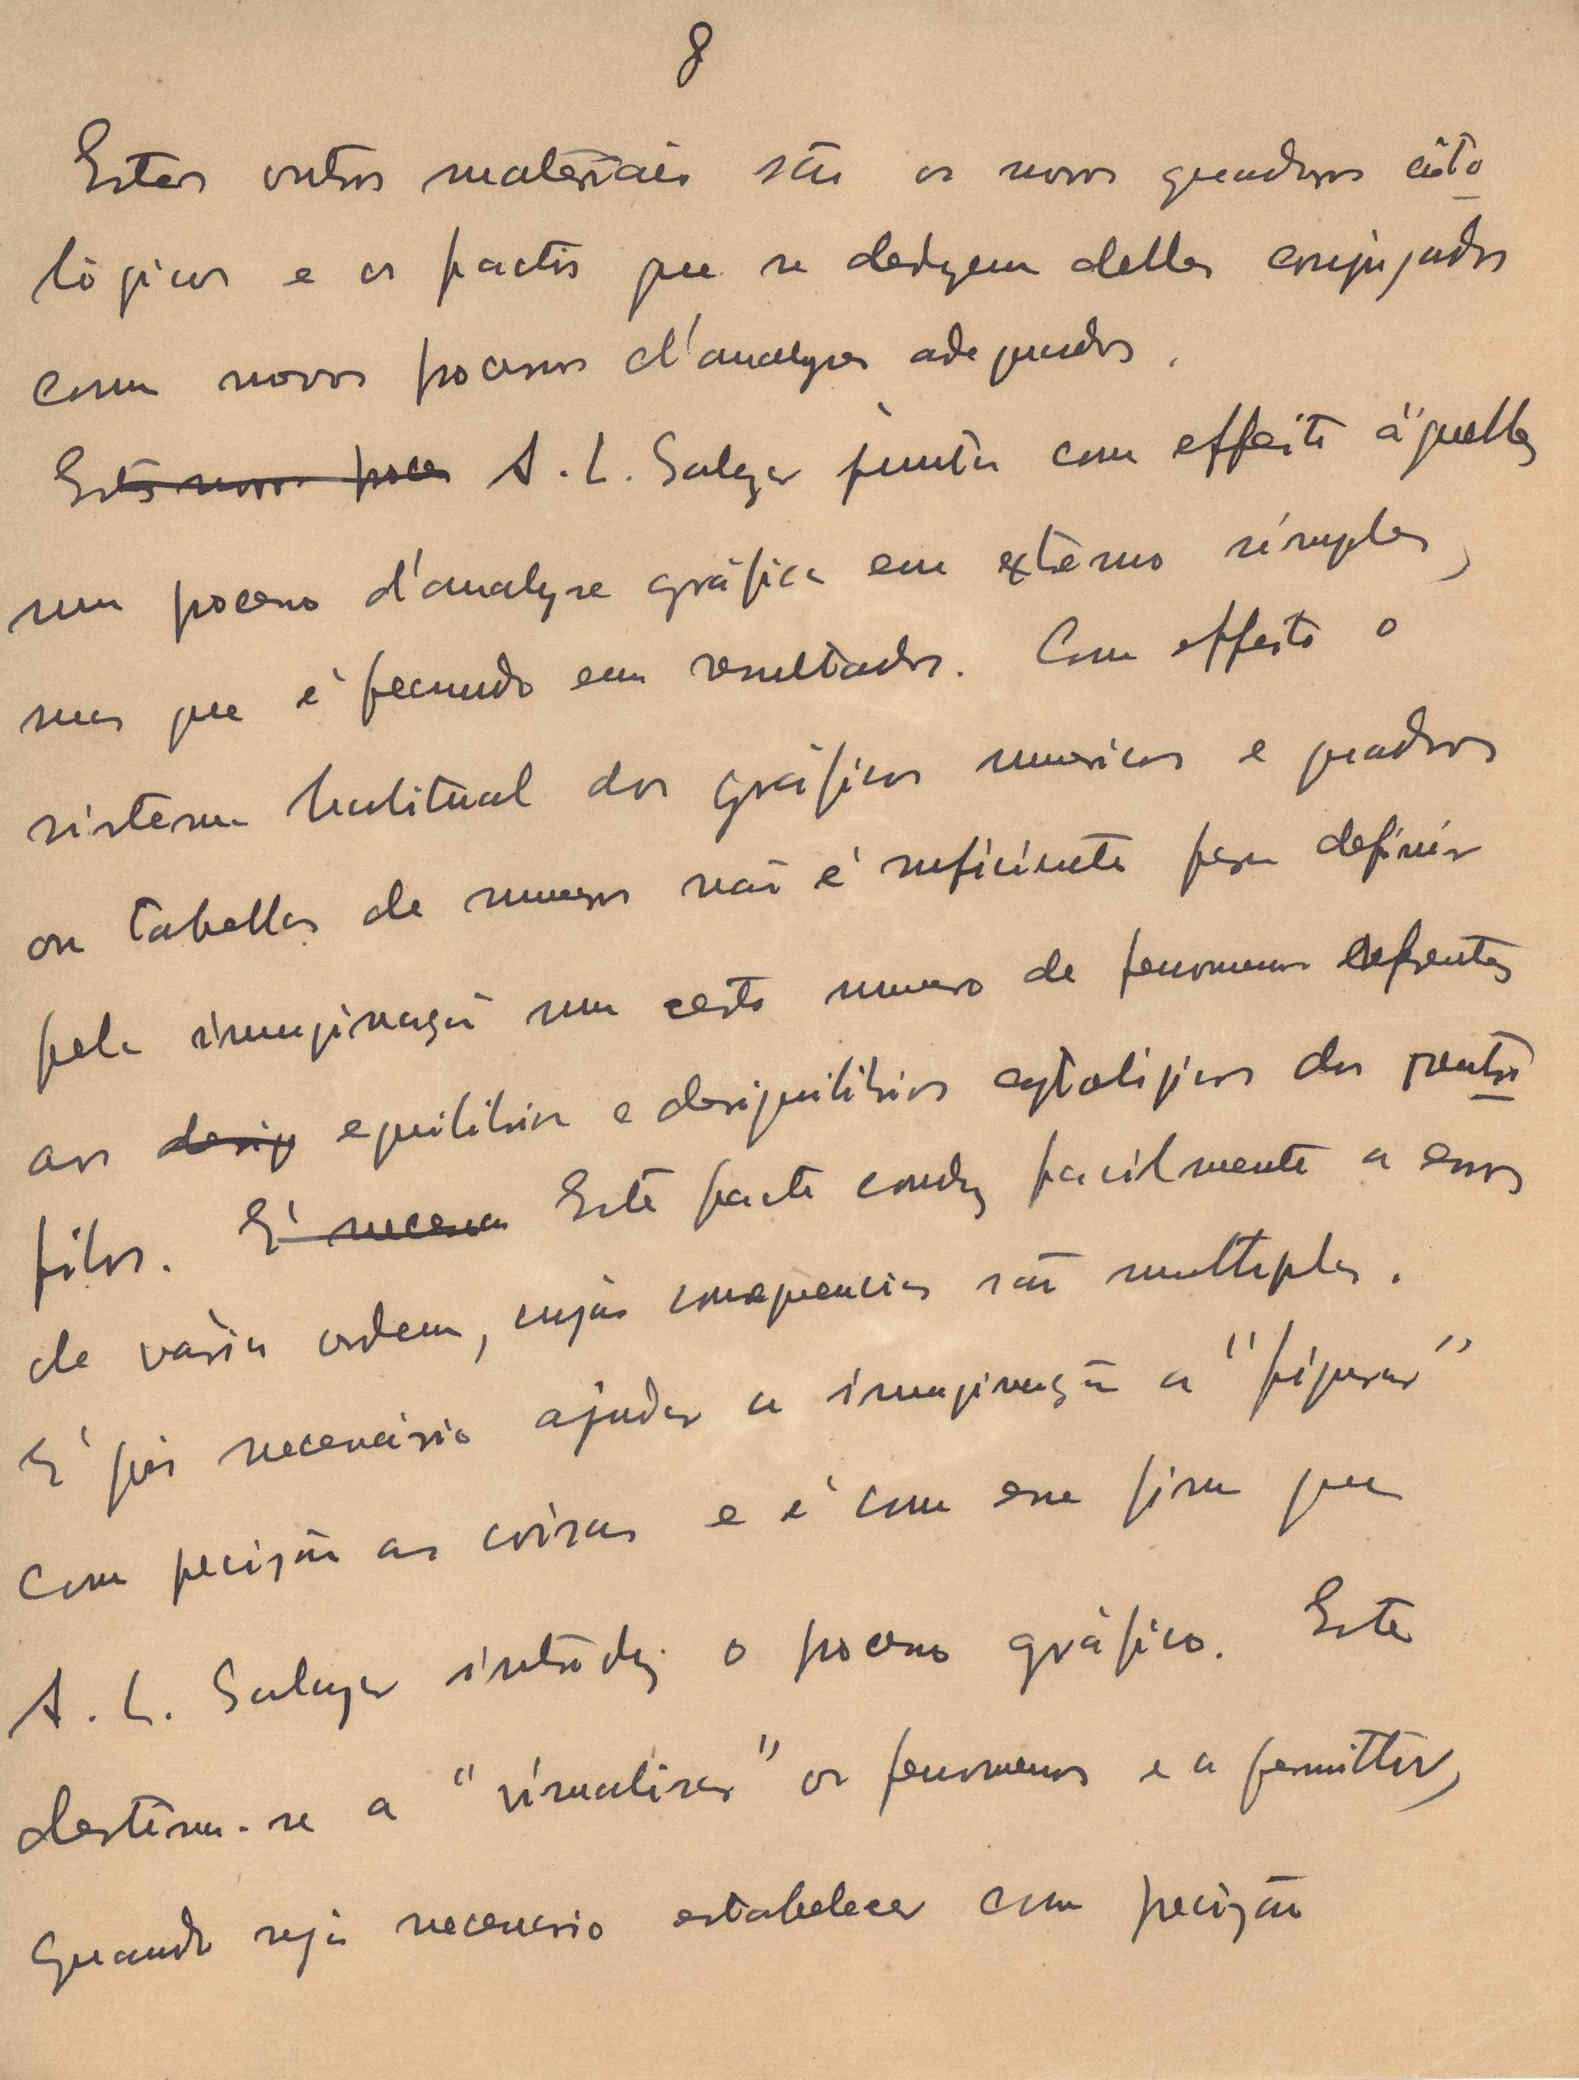 8
Estes outros materiais são os novos quadros cito
lógicos e os factos que se deduzem delles conjugados
com novos processos d'analyse adequados.
Estes novos proce A. L. Salazar junta com effeito àquelles
um processo d'analyse gráfica em extremo simples,
mas que é fecundo em resultados. Com effeito o
sistema habitual dos gráficos numericos e quadros
ou tabellas de numeros não é suficiente para definir
pela imaginação um certo numero de fenomenos referentes
aos deseq equilibrios e desiquilibrios cytologicos dos neutró
filos. É necessa Este facto conduz facilmente a erros
de vária ordem, cujas consequencias são multiplas.
É pois necessário ajudar a imaginação a "figurar"
com precisão as coisas e é com esse fim que
A. L. Salazar introduz o processo gráfico. Este
destina-se a "visualisar" os fenomenos e a permittir,
quando seja necessario estabelecer com precisão